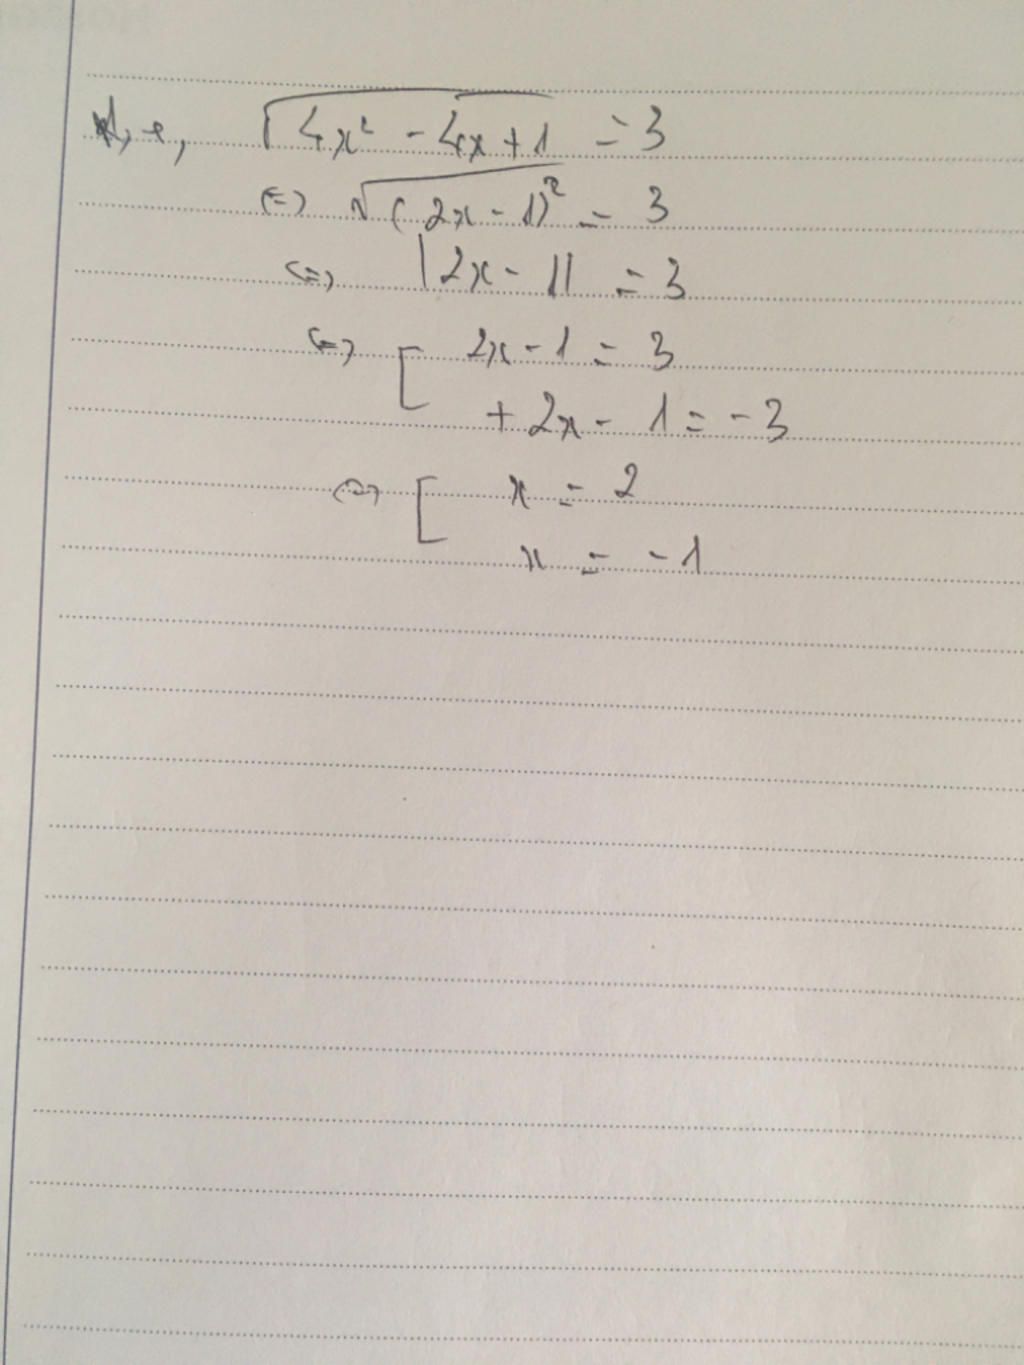 √(4x² - 4x + 1) = 3
<=> √((2x - 1)²) = 3
<=> |2x - 1| = 3
<=> [ 2x - 1 = 3
+ 2x - 1 = -3
<=> [ x = 2
x = -1